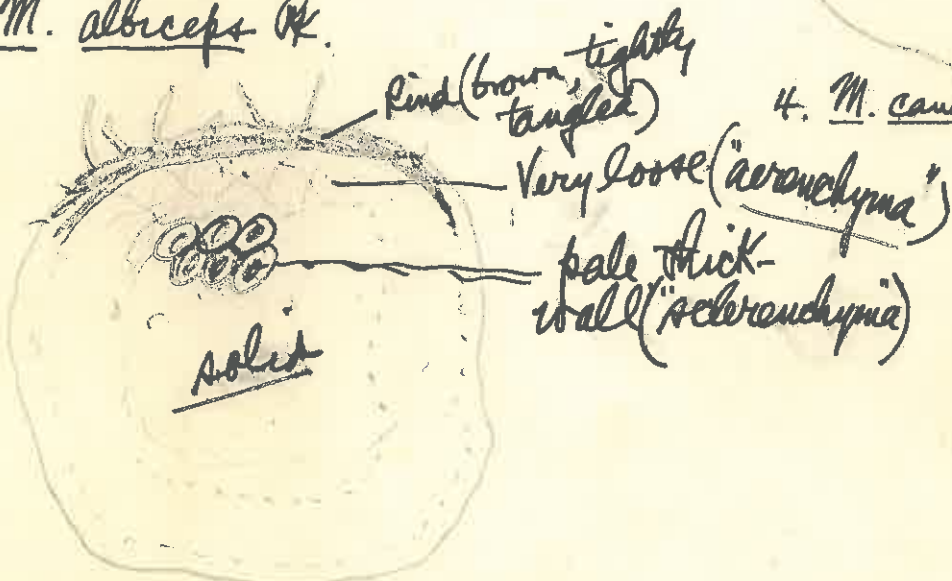 M. albiceps Pk.
Rind (brown, tightly
tangled)
4. M. cau
Very loose ("aerenchyma")
pale thick-
wall ("sclerenchyma")
solid